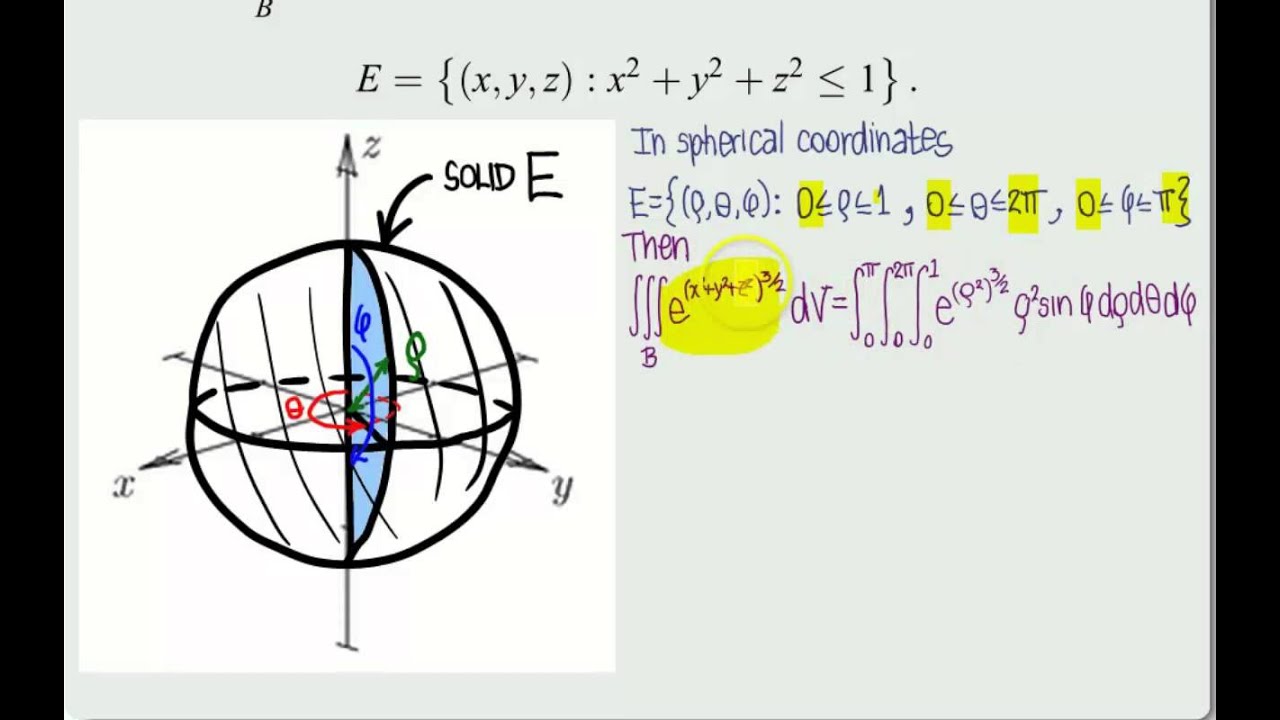 B
E = {(x, y, z) : x² + y² + z² ≤ 1} .
z
SOLID E
φ
ρ
θ
x
y
In spherical coordinates
E={(ρ,θ,φ): 0≤ρ≤1 , 0≤θ≤2π , 0≤φ≤π}
Then
∭_B e^(x²+y²+z²)^3/2 dV = ∫_0^π ∫_0^2π ∫_0^1 e^(ρ²)^3/2 ρ² sin φ dρ dθ dφ